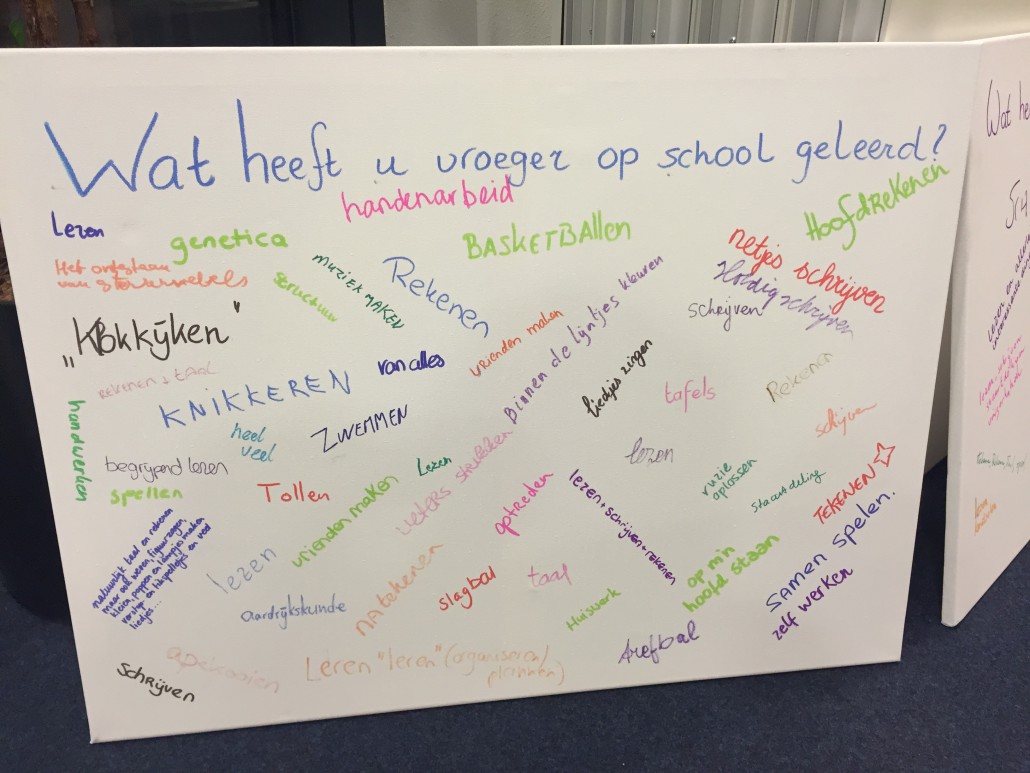 Wat heeft u vroeger op school geleerd?
handenarbeid
Hoofdrekenen
Lezen
genetica
BASKETBAllen
netjes schrijven
Het ontstaan
van
structuur
muziek maken
Rekenen
Binnen de lijntjes kleuren
Holdig schrijven
schrijven
„KBkkijken”
vrienden maken
van alles
liedjes zingen
rekenen & taal
KNIKKEREN
tafels
Rekenen
handwerken
heel
veel
ZWEMMEN
schijven
begrijpend lezen
Lezen
lezen
spellen
Tollen
vrienden maken
optreden
lezen + schrijven + rekenen
ruzie
oplossen
Staartdeling
TEKENEN
natuurlijk taal en rekenen
maar ook weven, figuurzagen,
kleien, poppen en lampjes maken
liedjes...
lezen
Aardrijkskunde
natekenen
slagbal
taal
Huiswerk
op m'n
hoofd staan
samen spelen.
zelf werken
apekooien
Leren "leren" (organiseren/
plannen)
Arefbal
Schrijven
Wat he